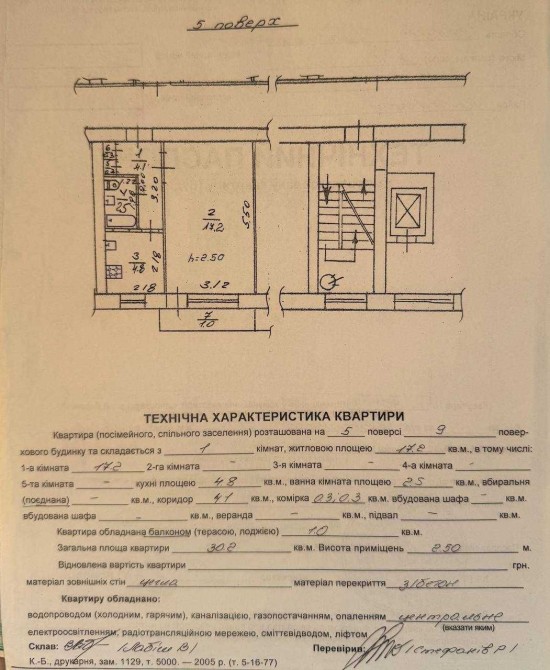 5 поверх
1
4.1
3.20
2
17.2
5.50
h=2.50
3.12
2.5
3
4.8
2.18
2.18
7
1.0
ТЕХНІЧНА ХАРАКТЕРИСТИКА КВАРТИРИ
Квартира (посімейного, спільного заселення) розташована на 5 поверсі 9 повер-
хового будинку та складається з 1 кімнат, житловою площею 17.2 кв.м., в тому числі:
1-а кімната 17.2 2-га кімната - 3-я кімната - 4-а кімната -
5-та кімната - кухні площею 4.8 кв.м., ванна кімната площею 2.5 кв.м., вбиральня
(поєднана) - кв.м., коридор 4.1 кв.м., комірка 0.3; 0.3 кв.м. вбудована шафа -
вбудована шафа - кв.м., веранда - кв.м., підвал - кв.м.
Квартира обладнана балконом (терасою, лоджією) 1.0 кв.м.
Загальна площа квартири 30.2 кв.м. Висота приміщень 2.50 м.
Відновлена вартість квартири грн.
матеріал зовнішніх стін цегла матеріал перекриття з/бетон
Квартиру обладнано:
водопроводом (холодним, гарячим), каналізацією, газопостачанням, опаленням центральне
(вказати яким)
електроосвітленням, радіотрансляційною мережею, сміттєвідводом, ліфтом
Склав: Перевірив:
К.-Б., друкарня, зам. 1129, т. 5000. — 2005 р. (т. 5-16-77)